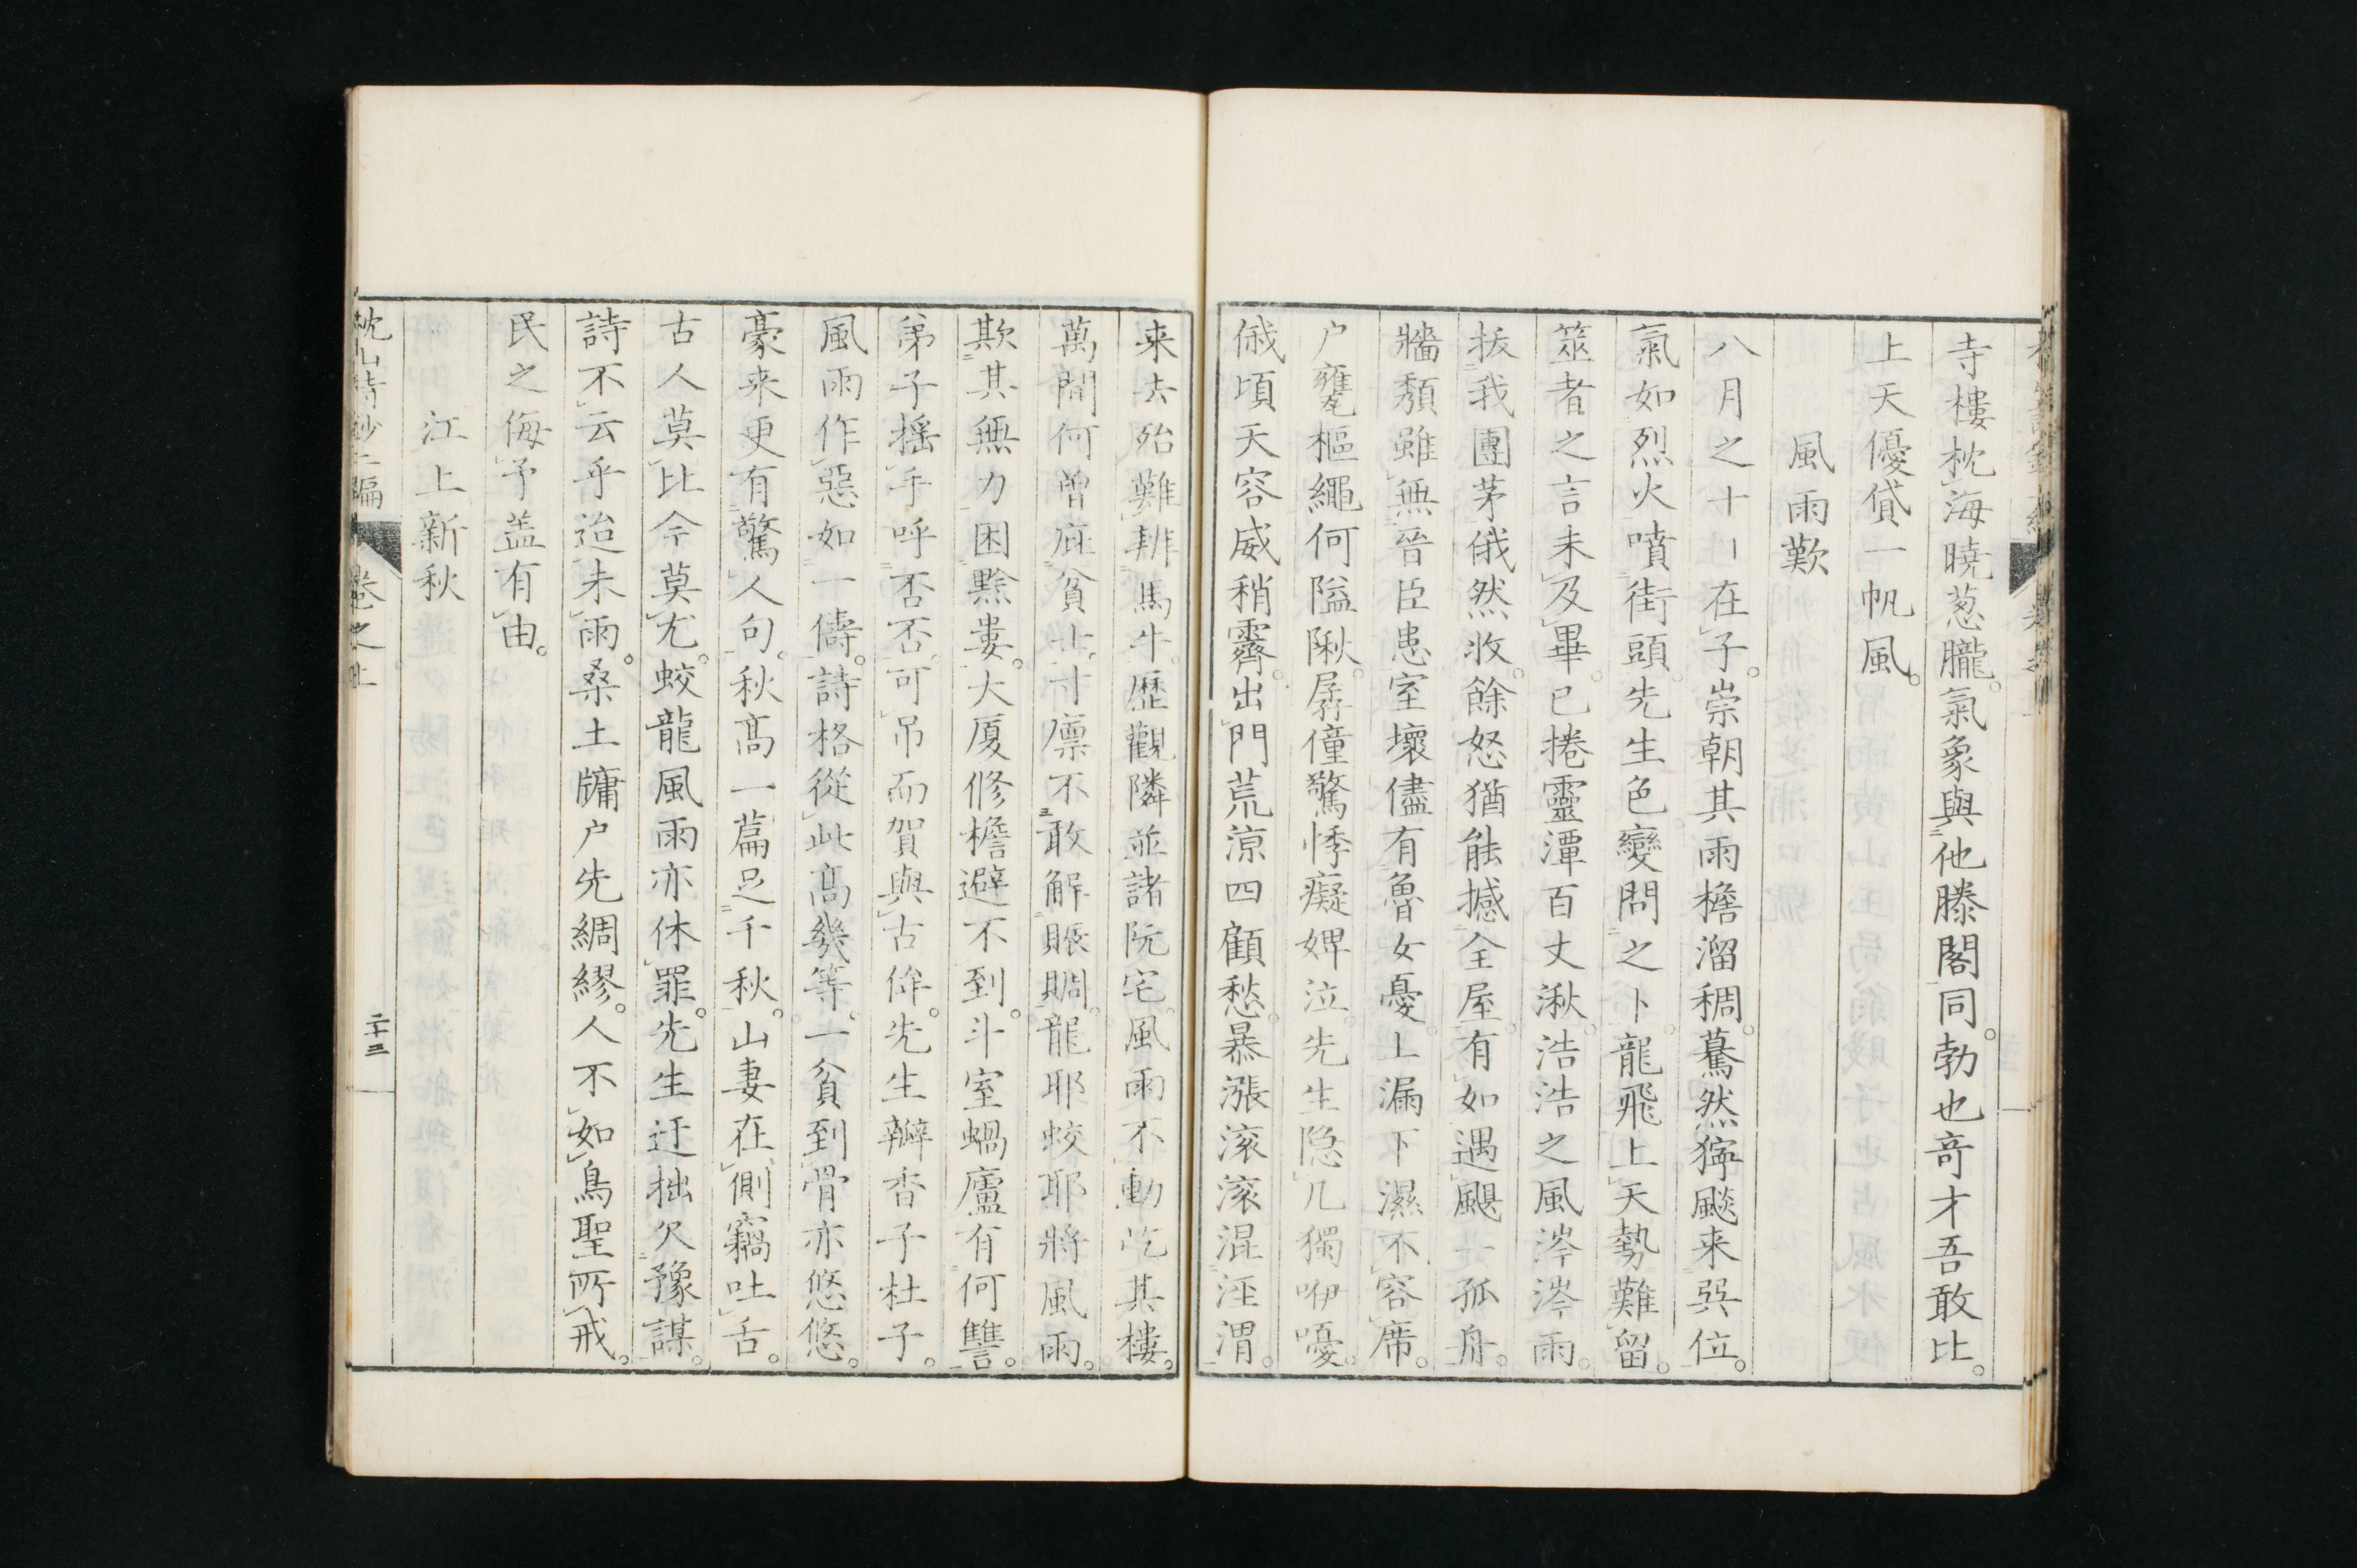 寺樓枕海曉葱朧。氣象與他滕閣同。勃也奇才吾敢比。
上天優貸一帆風。
風雨歎
八月之十一在子。崇朝其雨檐溜稠。驀然獰颷来巽位。
氣如烈火噴街頭。先生色變問之卜。龍飛上天勢難留。
筮者之言未及畢。已捲靈潭百丈湫。浩浩之風涔涔雨。
拔我團茅俄然收。餘怒猶能撼全屋。有如遇颶一孤舟。
牆頽雖無晉臣患。室壞儘有魯女憂。上漏下濕不容席。
户甕樞繩何隘陬。孱僮驚悸癡婢泣。先生隐几獨咿嚘。
俄頃天容威稍霽。出門荒涼四顧愁。暴漲滚滚混涇渭。
来去殆難辨馬牛。歴觀隣並諸阮宅。風雨不動屹其樓。
萬間何曾庇貧士。寸廪不敢解賑賙。龍耶蛟耶將風雨。
欺其無力困黔婁。大厦修檐避不到。斗室蝸廬有何讐。
弟子揺手呼否否。可吊而賀與古侔。先生瓣香子杜子。
風雨作惡如一儔。詩格從此高幾等。一貧到骨亦悠悠。
豪来更有驚人句。秋高一篇足千秋。山妻在側竊吐舌。
古人莫比今莫尤。蛟龍風雨亦休罪。先生迂拙欠豫謀。
詩不云乎迨未雨。桑土牖户先綢繆。人不如鳥聖所戒。
民之侮予盖有由。
江上新秋
枕山詩鈔二編
卷之上
二十三